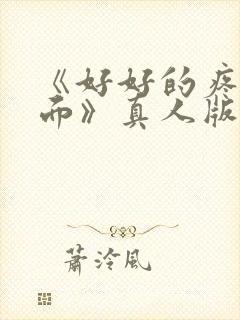 《好好的疼
而》真人版
萧泠风